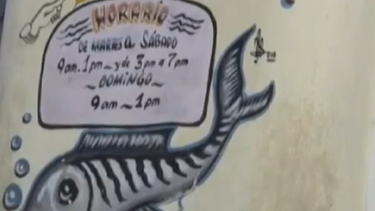 HORARIO
DE MARTES A SÁBADO
9am. 1pm - y de 3pm a 7pm
~DOMINGO~
9am ~ 1pm